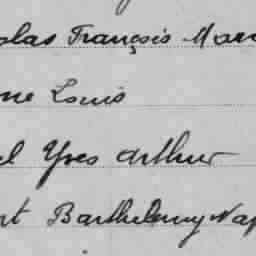 olas François Mar
ne Louis
el Yves Arthur
rt Barthelemy Nap